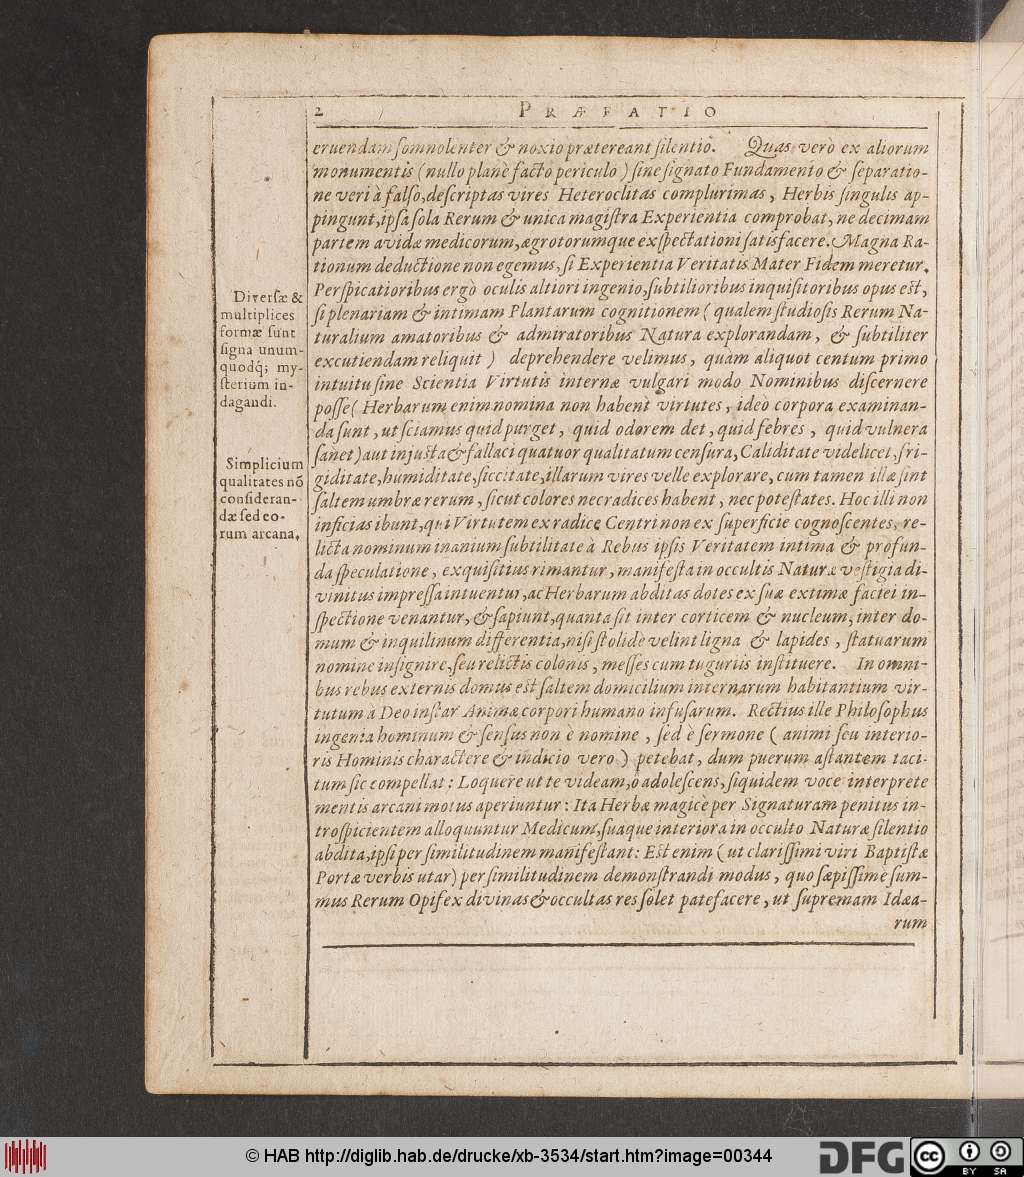 2 PRÆFATIO
eruendam somnolenter & noxio prætereant silentio. Quas verò ex aliorum
monumentis (nullo planè facto periculo) sine signato Fundamento & separatio-
ne veri à falso, descriptas vires Heteroclitas complurimas, Herbis singulis ap-
pingunt, ipsa sola Rerum & unica magistra Experientia comprobat, ne decimam
partem avidæ medicorum, ægrotorumque exspectationi satisfacere. Magna Ra-
tionum deductione non egemus, si Experientia Veritatis Mater Fidem meretur.
Perspicatioribus ergò oculis altiori ingenio, subtilioribus inquisitoribus opus est,
si plenariam & intimam Plantarum cognitionem (qualem studiosis Rerum Na-
turalium amatoribus & admiratoribus Natura explorandam, & subtiliter
excutiendam reliquit) deprehendere velimus, quàm aliquot centum primo
intuitu sine Scientia Virtutis internæ vulgari modo Nominibus discernere
posse (Herbarum enim nomina non habent virtutes, ideò corpora examinan-
da sunt, ut sciamus quid purget, quid odorem det, quid febres, quid vulnera
sanet) aut injusta & fallaci quatuor qualitatum censura, Caliditate videlicet, fri-
giditate, humiditate, siccitate, illarum vires velle explorare, cum tamen illæ sint
saltem umbræ rerum, sicut colores nec radices habent, nec potestates. Hoc illi non
inficias ibunt, qui Virtutem ex radice Centri non ex superficie cognoscentes, re-
licta nominum inanium subtilitate à Rebus ipsis Veritatem intima & profun-
da speculatione, exquisitius rimantur, manifesta in occultis Naturæ vestigia di-
vinitus impressa intuentur, ac Herbarum abditas dotes ex suæ extimæ faciei in-
spectione venantur, & sapiunt, quanta sit inter corticem & nucleum, inter do-
mum & inquilinum differentia, nisi stolidè velint ligna & lapides, statuarum
nomine insignire, seu relictis colonis, messes cum tuguriis instituere. In omni-
bus rebus externis domus est saltem domicilium internarum habitantium vir-
tutum à Deo instar Animæ corpori humano infusarum. Rectius ille Philosophus
ingenia hominum & sensus non è nomine, sed è sermone (animi seu interio-
ris Hominis charactere & indicio vero) petebat, dum puerum astantem taci-
tum sic compellat: Loquere ut te videam, ô adolescens, siquidem voce interprete
mentis arcani motus aperiuntur: Ita Herbæ magicè per Signaturam penitus in-
trospicientem alloquuntur Medicum, suaque interiora in occulto Naturæ silentio
abdita, ipsi per similitudinem manifestant: Est enim (ut clarissimi viri Baptistæ
Portæ verbis utar) per similitudinem demonstrandi modus, quo sæpissimè sum-
mus Rerum Opifex divinas & occultas res solet patefacere, ut supremam Idæa-
rum
Diversæ &
multiplices
formæ sunt
signa unum-
quodq́; my-
sterium in-
dagandi.
Simplicium
qualitates nō
consideran-
dæ sed eo-
rum arcana.
© HAB http://diglib.hab.de/drucke/xb-3534/start.htm?image=00344
DFG
cc BY SA